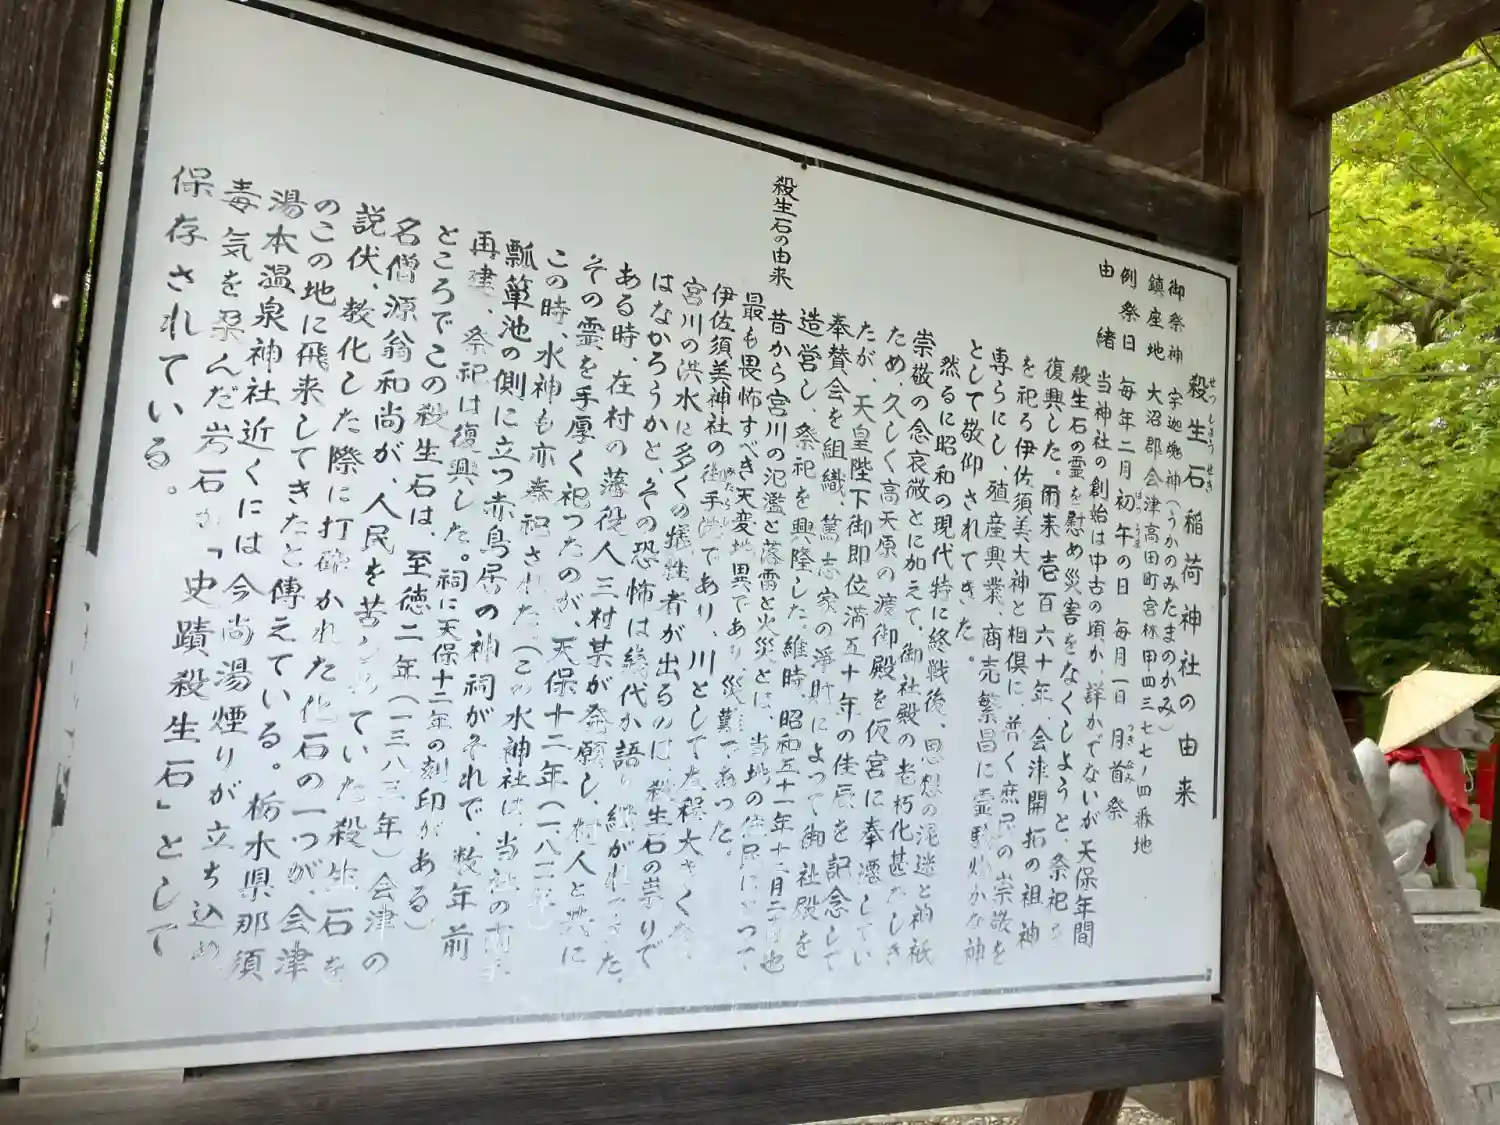 殺生石稲荷神社の由来
せっしょうせき
御祭神　宇迦魂神（うかのみたまのかみ）
鎮座地　大沼郡会津高田町宮林甲四三七七ノ四番地
例祭日　毎年二月初午の日　毎月一日　月首祭
はつうま
つきなみ
由緒　当神社の創始は中古の頃か、詳かでないが天保年間
殺生石の霊を慰め災害をなくしようと、祭祀を
復興した。爾来壱百六十年、会津開拓の祖神
を祀る伊佐須美大神と相俱に、普く庶民の崇敬を
専らにし、殖産興業、商売繁昌に霊験灼かな神
として敬仰されてきた。
然るに昭和の現代特に終戦後、思想の混迷と神祇
崇敬の念衰微とに加えて、御社殿の老朽化甚だしき
ため、久しく高天原の渡御殿を仮宮に奉遷してい
たが、天皇陛下御即位満五十年の佳辰を記念して
奉賛会を組織、篤志家の浄財によって御社殿を
造営し、祭祀を興隆した。維時昭和五十一年十二月二十日也
殺生石の由来
昔から宮川の氾濫と落雷と火災とは、当地の住民にとって
最も畏怖すべき天変地異であり、災難であった。
伊佐須美神社の御手洗であり、川としては大きく
みたらし
宮川の洪水に多くの犠牲者が出るのは、殺生石の祟りで
はなかろうかと、その恐怖は幾代か語り継がれてきた。
ある時、在村の藩役人三村某が発願し、村人と共に
その霊を手厚く祀ったのが、天保十二年
この時、水神も亦奉祀された（この水神社は、当社の南
瓢簞池の側に立つ赤鳥居の神祠がそれで、数年前
再建、祭祀は復興した。祠に天保十二年の刻印がある）
ところでこの殺生石は、至徳二年（一三八三年）会津の
名僧源翁和尚が、人民を苦しめていた殺生石を
説伏、教化した際に打砕かれた化石の一つが、会津
のこの地に飛来してきたと傳えている。栃木県那須
湯本温泉神社近くには今尚湯煙りが立ち込め
毒気を孕んだ岩石が「史蹟殺生石」として
保存されている。